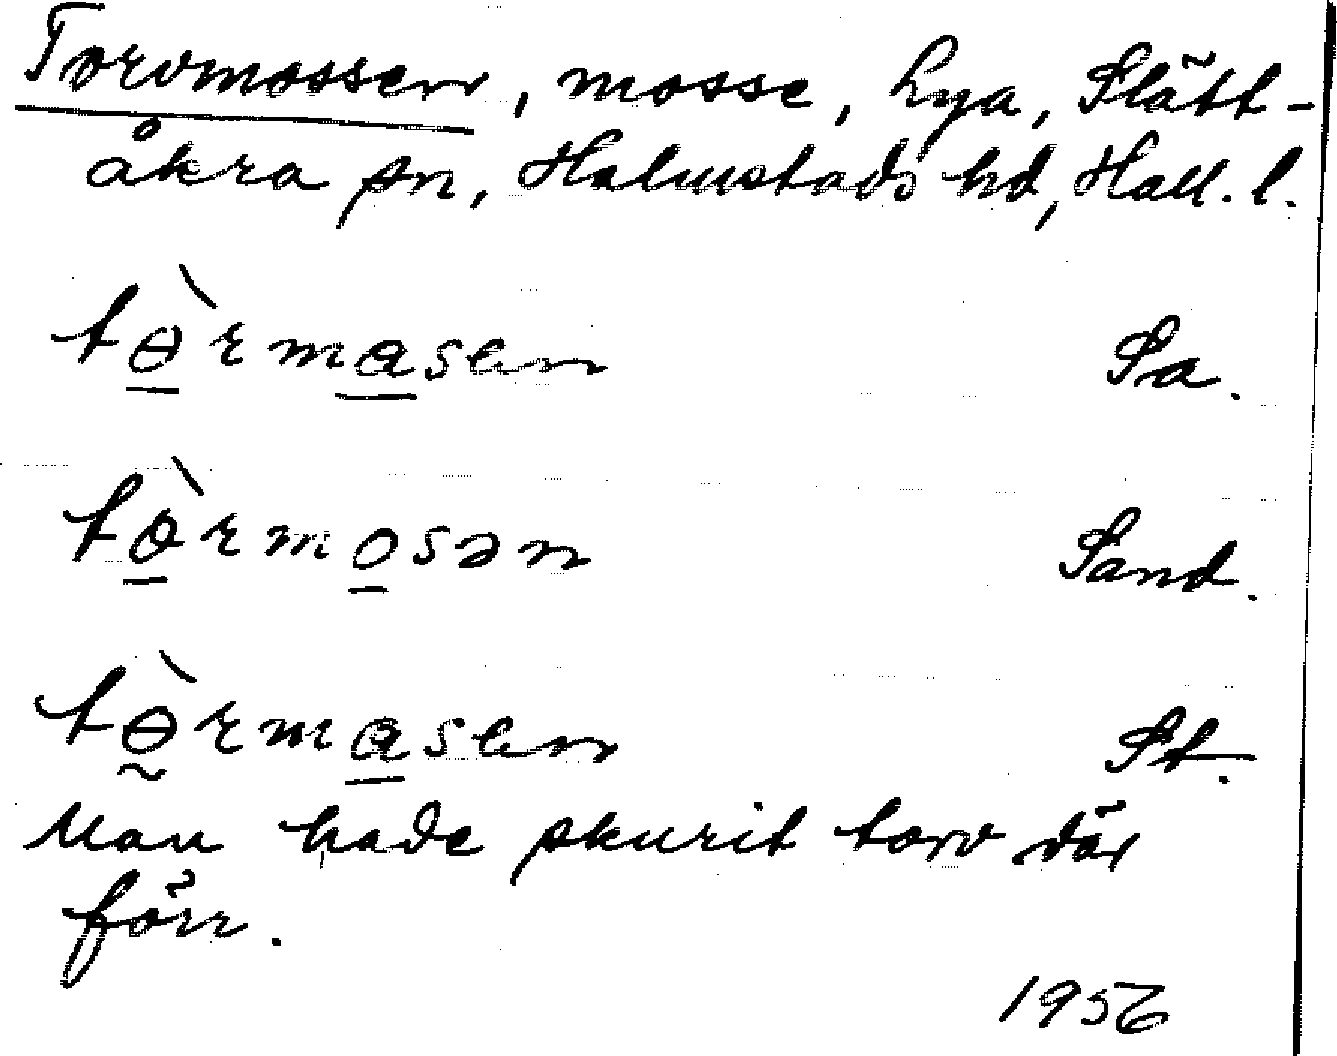 Torvmossen, mosse, Lya, Slätt-
åkra sn, Halmstads hd, Hall. l.
tɵ̀rmasen Sa.
tòrmosən Sand.
tɵ̀rmasen St.
Man hade skurit torv där
förr.
1956